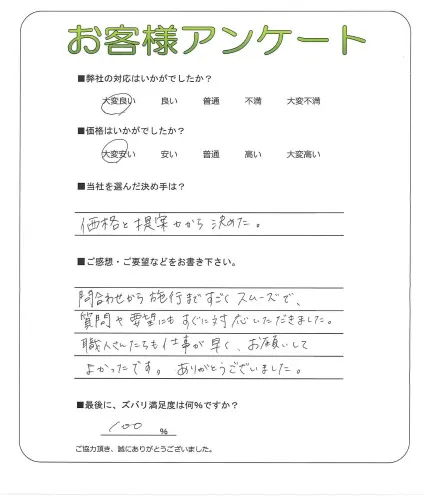 お客様アンケート
■弊社の対応はいかがでしたか？
大変良い 良い 普通 不満 大変不満
■価格はいかがでしたか？
大変安い 安い 普通 高い 大変高い
■当社を選んだ決め手は？
価格と提案力から決めた。
■ご感想・ご要望などをお書き下さい。
問合わせから施行まですごくスムーズで、
質問や要望にもすぐに対応いただきました。
職人さんたちも仕事が早く、お願いして
よかったです。ありがとうございました。
■最後に、ズバリ満足度は何％ですか？
100 ％
ご協力頂き、誠にありがとうございました。